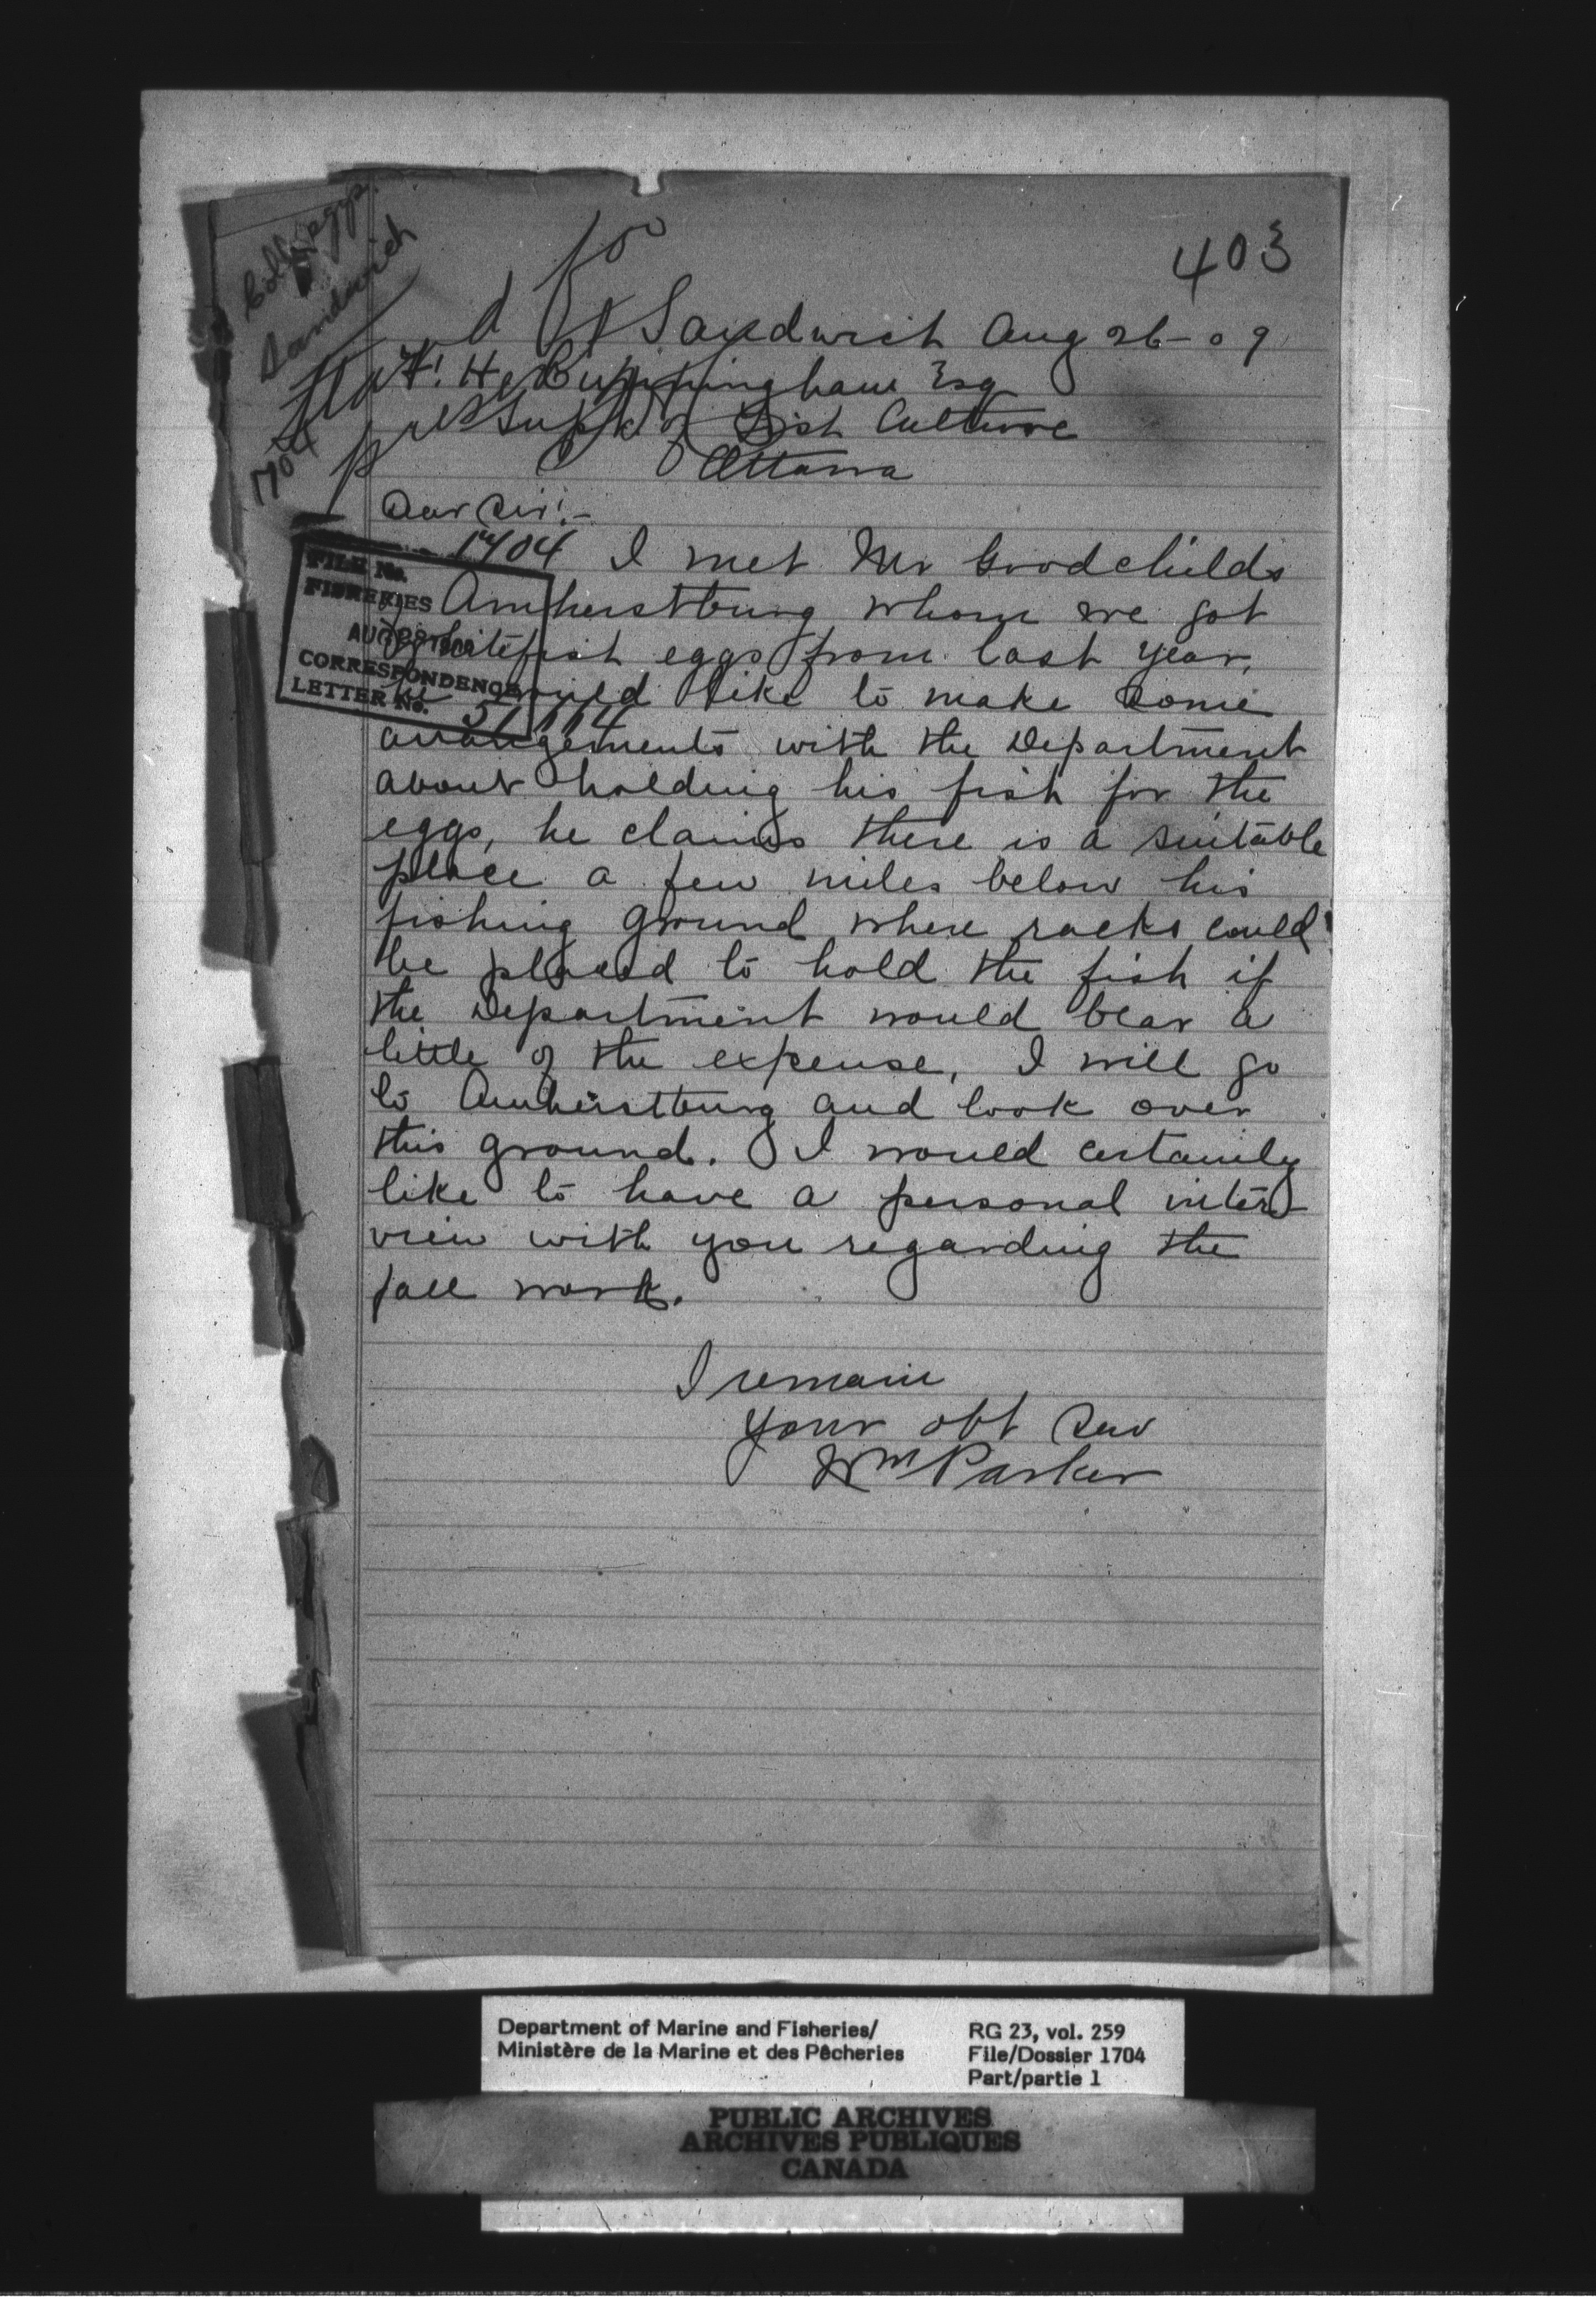 403
Coll. eggs
Sandwich
1704
Sandwich Aug 26-09
F. H. Cunningham Esq
Supt of Fish Culture
Ottawa
Dear Sir:-
I met Mr Goodchilds
of Amherstburg whom we got
whitefish eggs from last year,
he would like to make some
arrangements with the Department
about holding his fish for the
eggs, he claims there is a suitable
place a few miles below his
fishing ground where racks could
be placed to hold the fish if
the Department would bear a
little of the expense, I will go
to Amherstburg and look over
this ground. I would certainly
like to have a personal inter-
view with you regarding the
fall work.
I remain
your obt Ser
Wm Parker
FILE No. 1704
FISHERIES
AUG
CORRESPONDENCE
LETTER No.
Department of Marine and Fisheries/
Ministère de la Marine et des Pêcheries
RG 23, vol. 259
File/Dossier 1704
Part/partie 1
PUBLIC ARCHIVES
ARCHIVES PUBLIQUES
CANADA